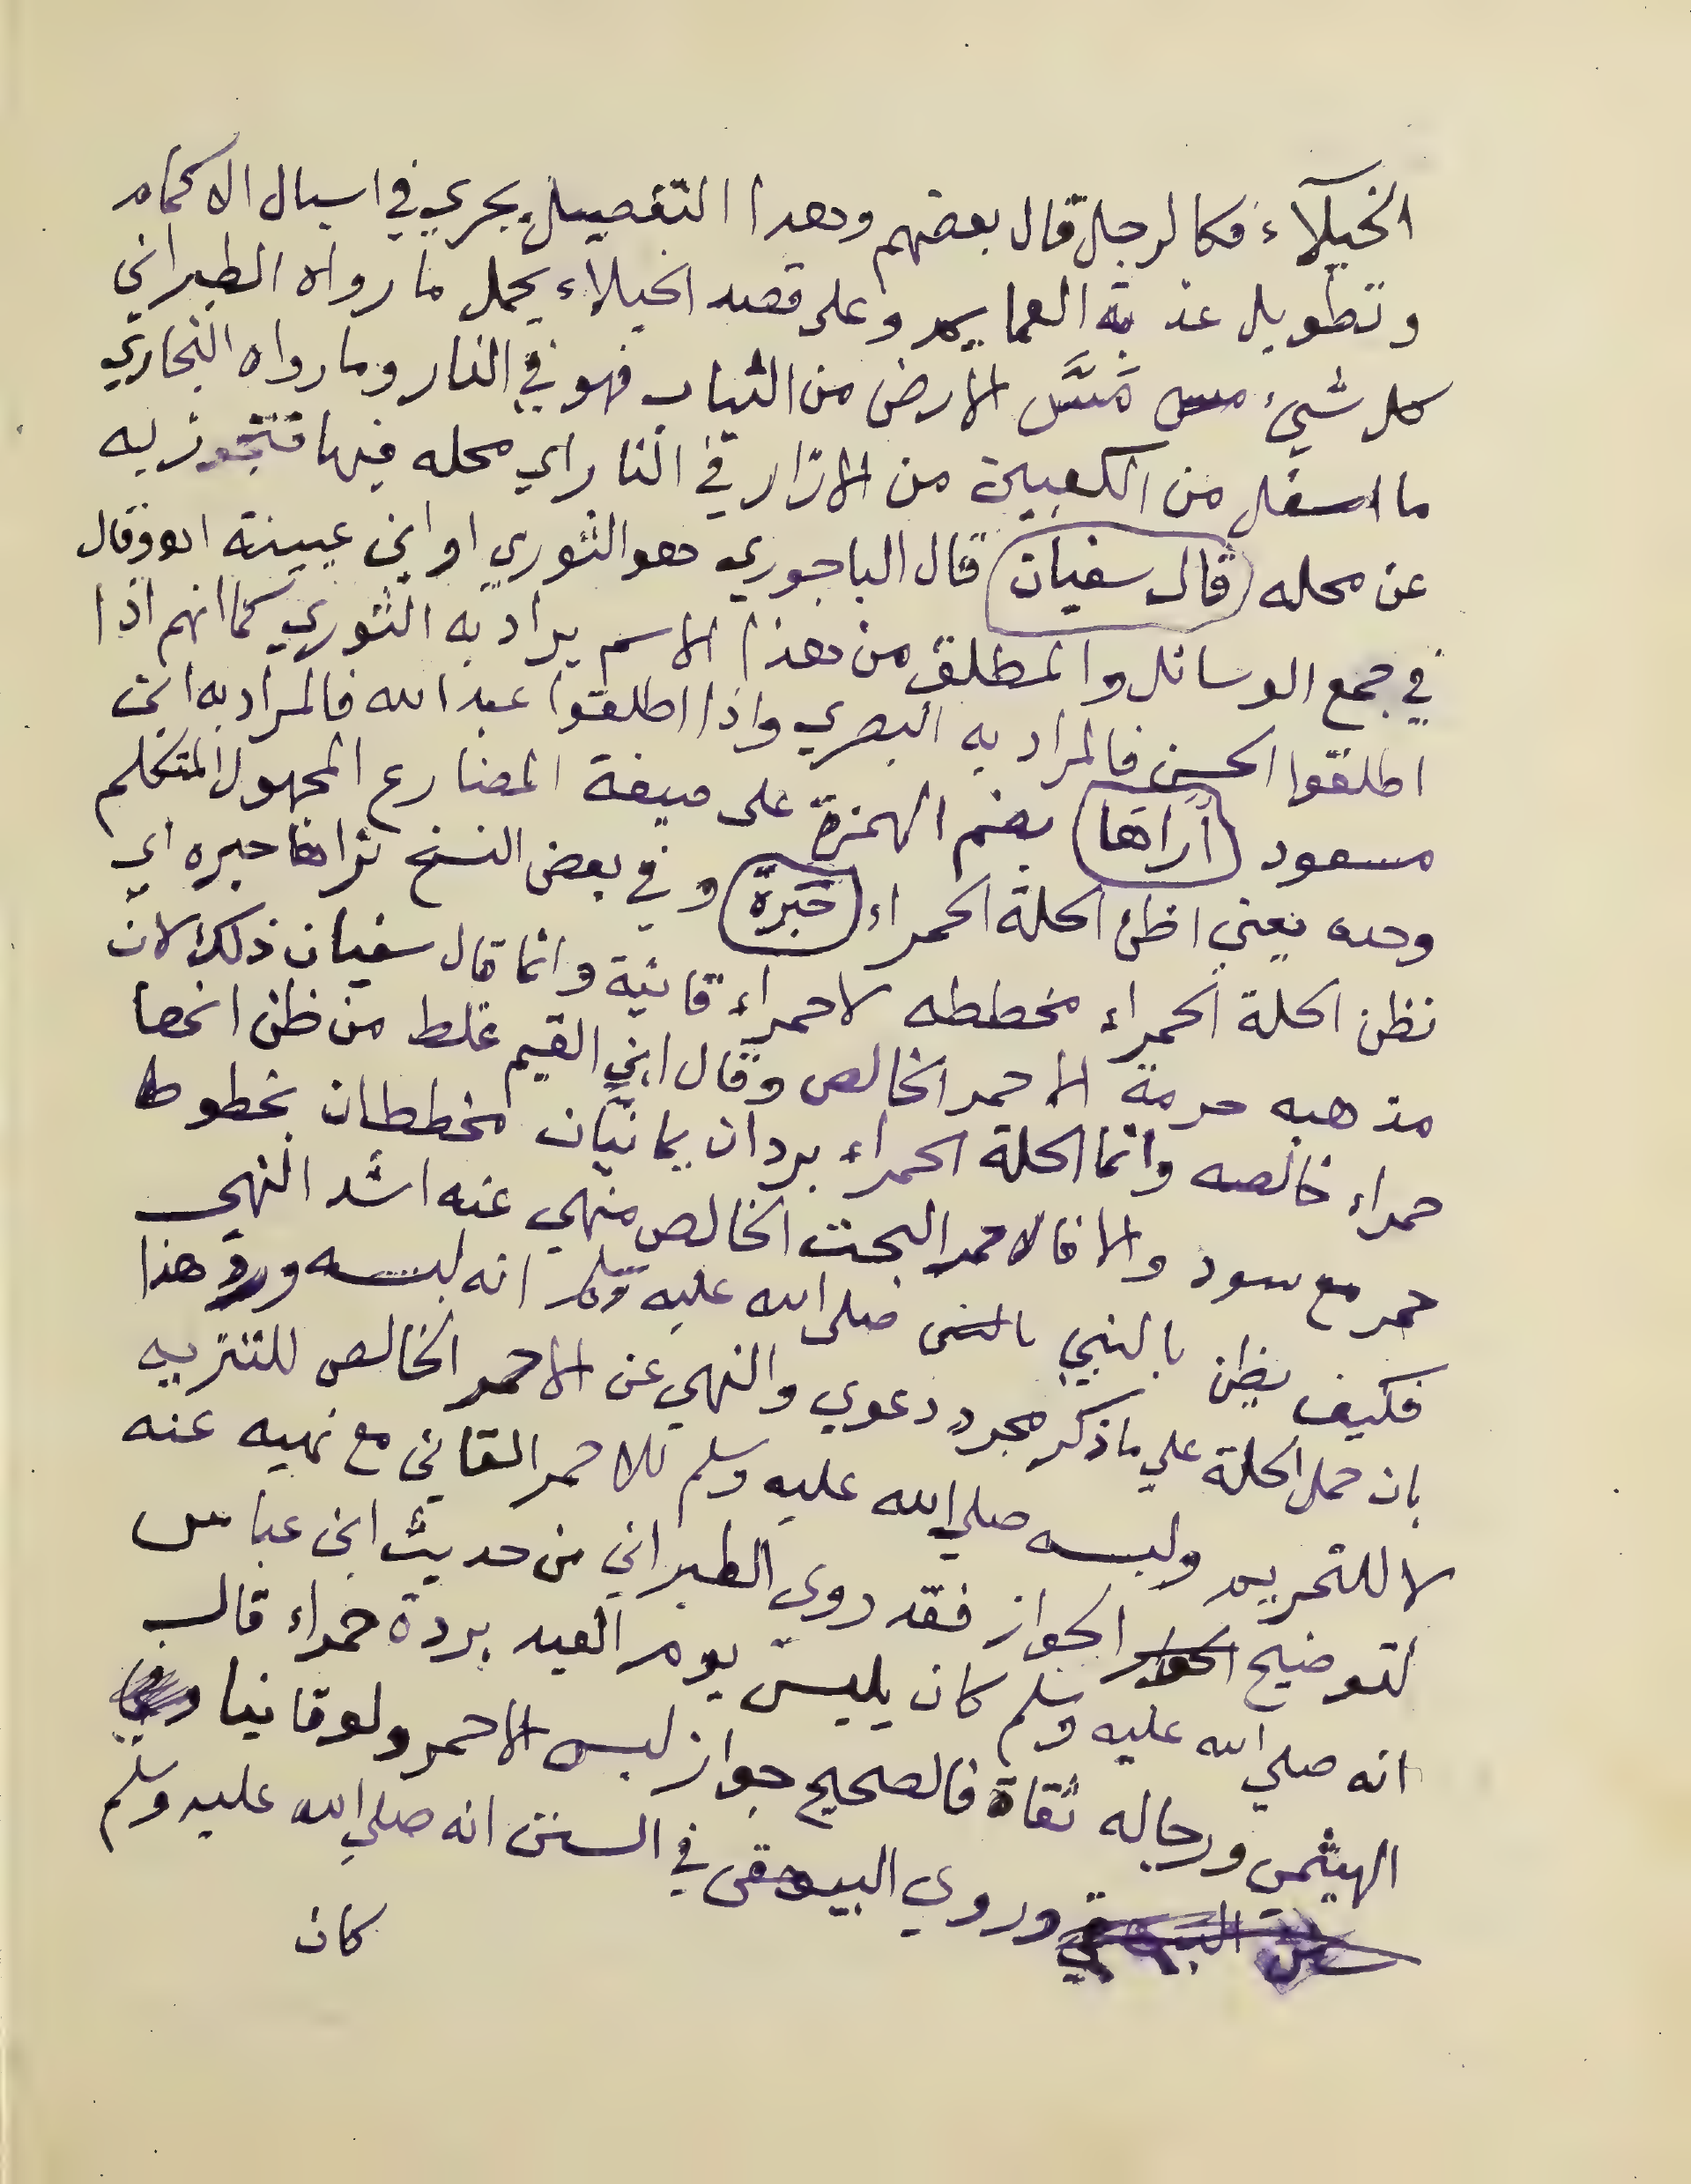 الخيلآء فكالرجل قال بعضهم وهذا التفصيل يجري في اسبال الاكمام
وتطويل عذبة العمايم وعلى قصد الخيلاء يحمل ما رواه الطبراني
كل شيء مس مَسَّ الارض من الثياب فهو في النار وما رواه البخاري
ما اسفل من الكعبين من الازار في النار اي محله فيها فتجوز به
عن محله قال سفيان قال الباجوري هو الثوري او ابن عيينة اهـ وقال
في جمع الوسائل والمطلق من هذا الاسم يراد به الثوري كما انهم اذا
اطلقوا الحسن فالمراد به البصري واذا اطلقوا عبد الله فالمراد به ابن
مسعود أُرَاهَا بضم الهمزة على صيغة المضارع المجهول المتكلم
وحده يعني اظن الحلة الحمراء حِبَرَة وفي بعض النسخ نراها حبره اي
نظن الحلة الحمراء مخططه لا حمراء قانية وانما قال سفيان ذلك لان
مذهبه حرمة الاحمر الخالص وقال ابن القيم غلط من ظن انها
حمراء خالصه وانما الحلة الحمراء بردان يمانيان مخططان بخطوط
حمر مع سود والا فالاحمر البحت الخالص منهي عنه اشد النهي
فكيف يظن بالنبي بالنبي صلى الله عليه وسلم انه لبسه ورد هذا
بان حمل الحلة علي ما ذكر مجرد دعوي والنهي عن الاحمر الخالص للتنزيه
لا للتحريم ولبسه صلي الله عليه وسلم للاحمر القاني مع نهيه عنه
لتوضيح الجواز الجواز فقد روي الطبراني من حديث ابن عباس
انه صلي الله عليه وسلم كان يلبس يوم العيد بردة حمراء قال
الهيثمي ورجاله ثقاة فالصحيح جواز لبس الاحمر ولو قانيا
البيهقي وروي البيهقي في السنن انه صلي الله عليه وسلم
كان